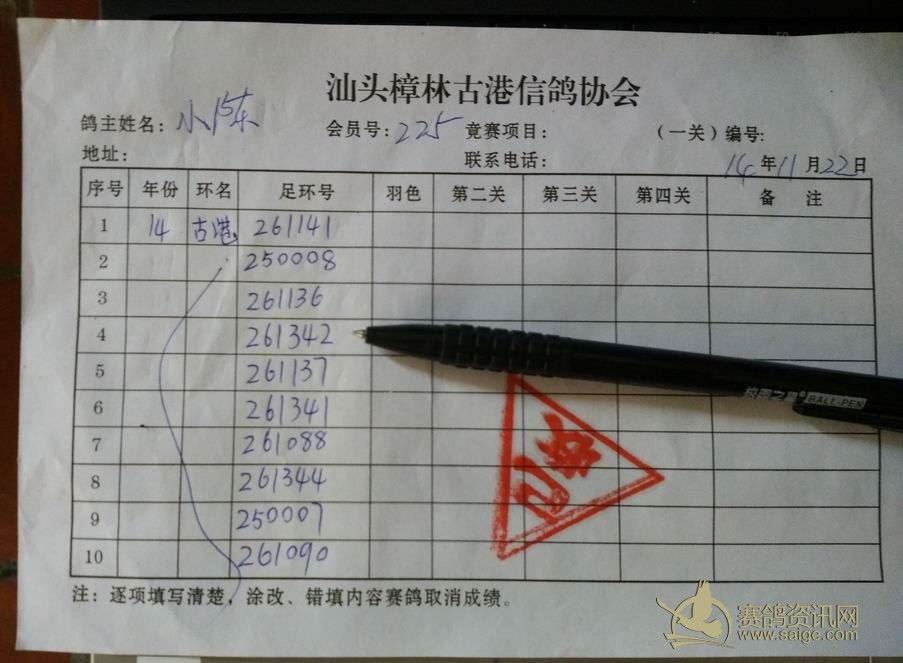 汕头樟林古港信鸽协会
鸽主姓名：小陈 会员号：225 竟赛项目： （一关）编号:
地址： 联系电话： 14年11月22日
序号 年份 环名 足环号 羽色 第二关 第三关 第四关 备 注
1 14 古港 261141
2 250008
3 261136
4 261342
5 261137
6 261341
7 261088
8 261344
9 250007
10 261090
注：逐项填写清楚，涂改、错填内容赛鸽取消成绩。
BALL-PEN
赛鸽资讯网
www.saige.com